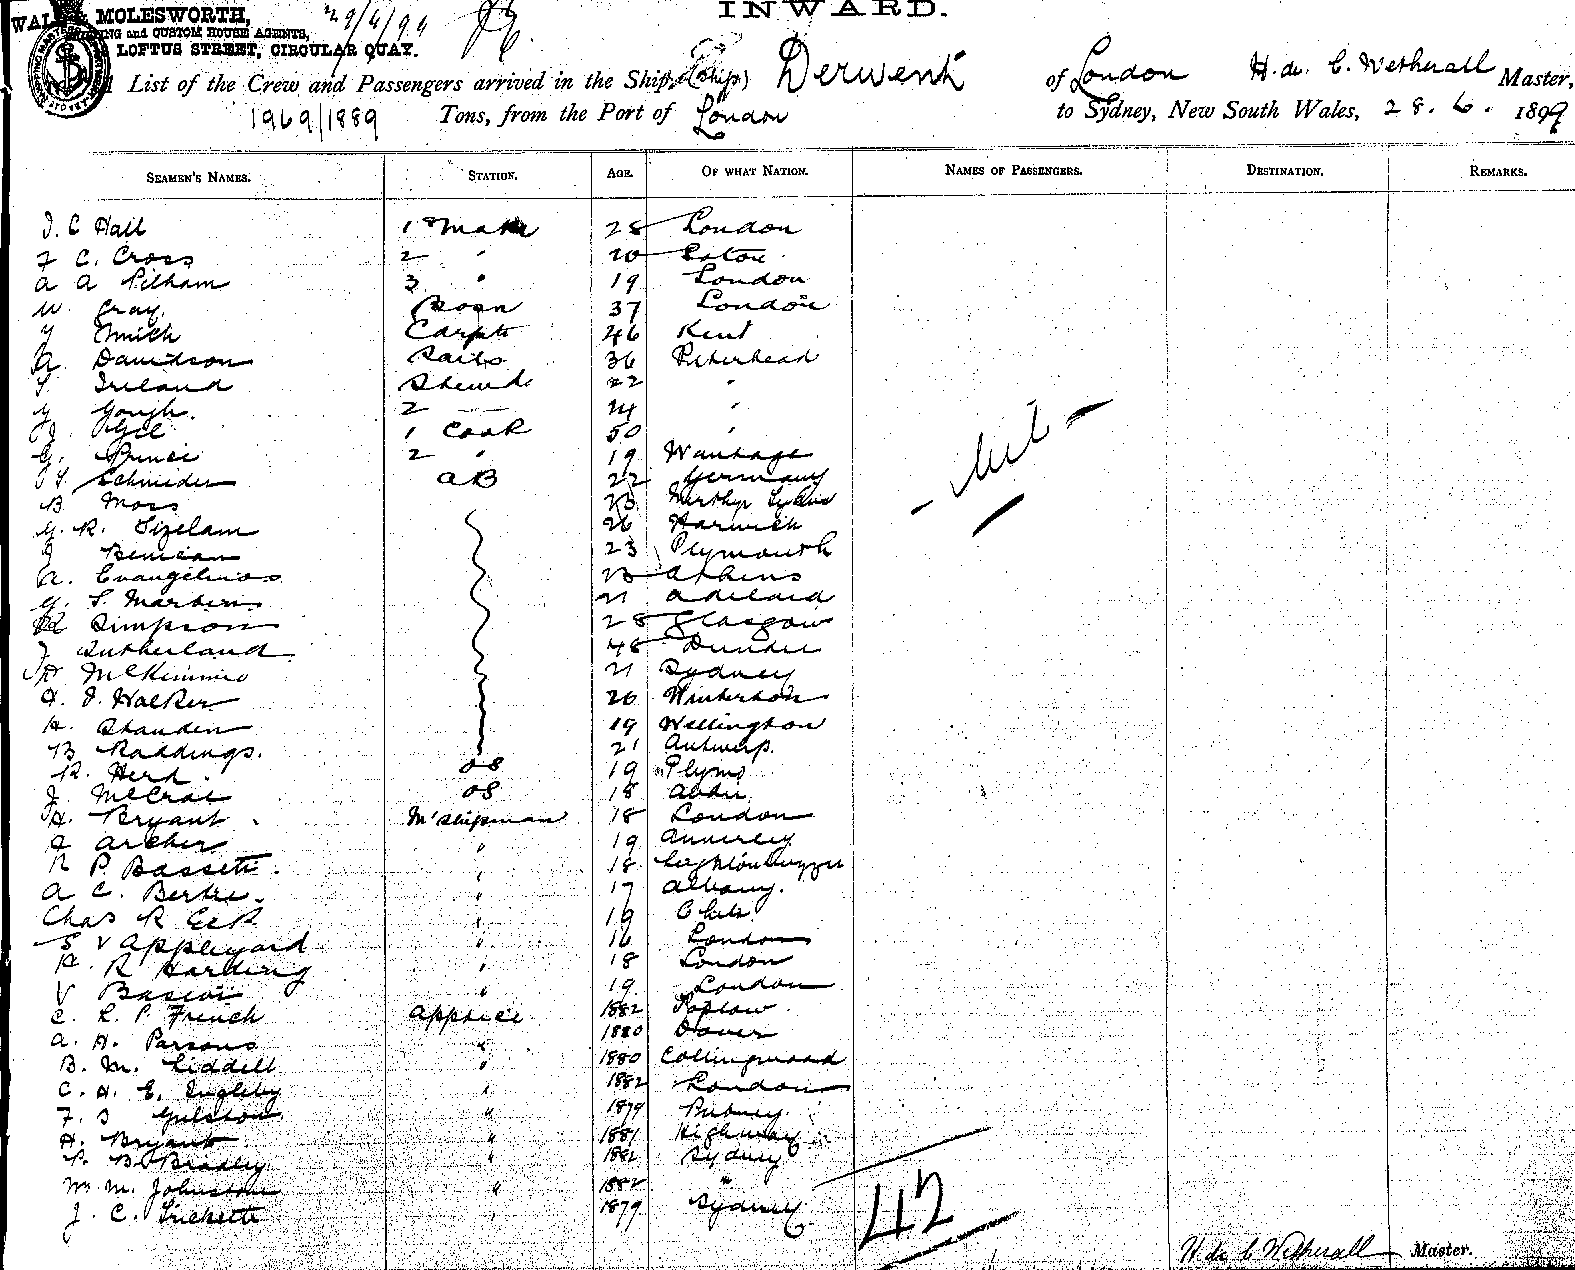 INWARD.
MOLESWORTH,
and CUSTOM HOUSE AGENTS,
LOFTUS STREET, CIRCULAR QUAY.
List of the Crew and Passengers arrived in the Ship (Ship) Derwent of London H. de. C. Wetherall Master,
1969/1889 Tons, from the Port of London to Sydney, New South Wales, 28. 6. 1899
SEAMEN'S NAMES. STATION. AGE. OF WHAT NATION. NAMES OF PASSENGERS. DESTINATION. REMARKS.
J. C Hall 1 Mate 28 London
F C. Cross 2 " 20
A A Pelham 3 " 19 London
W. Gray. Bosn 37 London
Smith Carptr 46 Kent
A. Davidson Sails 36 Peterhead
Ireland 22 "
Gough. 2 24 "
1 Cook 50 "
2 " 19 Wantage
Schneider AB 22 Germany
B. Moss 23 Merthyr
G. R. Sizelam 26 Harwich
23 Plymouth
A. Evangelinos 23 Athens
21 Adelaid
Simpson 28 Glasgow
J Sutherland 48 Dundee
McKimmie 21 Sydney
A. J. Walker 20 Winterton
H. 19 Wellington
B Raddings. 21 Antwerp.
R. Herd. OS 19 Plym
J. McCrae OS 18
H. Bryant M'shipman 18 London
A Archer " 19 Annerley
R P. Bassett. " 18
A C. " 17 Albany.
Chas R " 19
S V Appleyard " 16 London
H. R Harding " 18 London
V " 19 London
C. R. P. French Apptice 1882
A. H. Parsons " 1880 Dover
B. M. Liddell " 1880 Collingwood
C. H. E. Ingleby " 1882 London
F. S " 1879 Putney.
H. Bryant " 1881 Highway
P. B. Bradley " 1882 Sydney
W. M. Johnstone " 1882 "
J. C. Trickett " 1879 Sydney
42
H de C Wetherall Master.